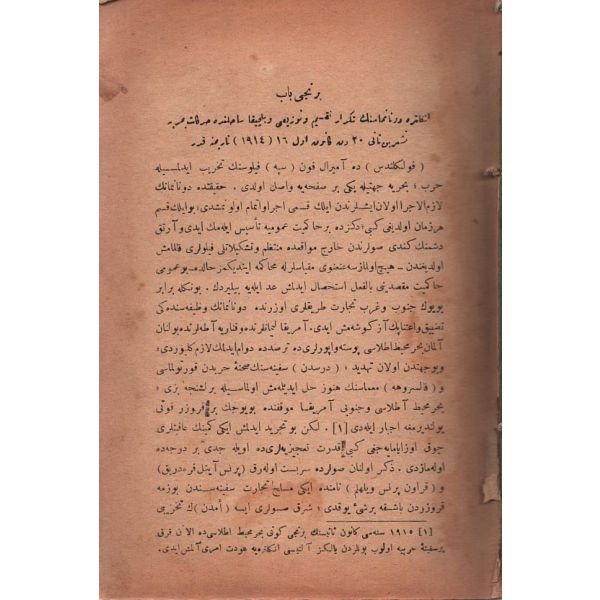 برنجی باب
انكلتره دونانماسنك تكرار تقسیم و توزیعی و بلچیقا ساحلنده حركات حربیه
تشرین ثانی ۳۰ دن كانون اول ۱۶ (۱۹۱۴) تاریخنه قدر
(فولكلندس) ده آمیرال فون (سپه) فیلوسنك تخریب ایدلمسیله
حرب؛ بحریه جهتیله یكی بر صفحه‌یه واصل اولدی. حقیقتده دونانمانك
لازم الاجرا اولان ایشلرندن ایلك قسمی اجرا واتمام اولونمشدی؛ بو ایلك قسم
هر زمان اولدیغی كبی؛ دكزده بر حاكمیت عمومیه تأسیس ایله‌مك ایدی و آرتق
دشمنك كندی صولرندن خارج مواقعده منتظم و تشكیلاتلی فیلولری قالمامش
اولدیغندن ـ هیچ اولمازسه عنعنوی مقیاسلرله محاكمه ایتدیكمز حالده ـ بو عمومی
حاكمیت مقصدینی بالفعل استحصال ایدلمش عد ایله‌یه بیلیردك. بونكله برابر
بویوك جنوب و غرب تجارت طریقلری اوزرنده دونانمانك وظیفه‌سنده كی
تضییق واعتنا پك آز كوشه‌مش ایدی. آمریقا لیمانلرنده وقناریه آطه‌لرنده بولنان
آلمان بحر محیط اطلاسی پوسته واپورلری ده ترصدده دوام ایدلمك لازم كلیوردی؛
وبوجهتدن اولان تهدید؛ (درسدن) سفینه‌سنك صحنۀ حربدن قورتولماسی
و (قالسروهه) معماسنك هنوز حل ایدیله‌مش اولماسیله برلشنجه بزی؛
بحر محیط آطلاسی وجنوبی آمریقا موقفنده بویوجك بر قروزر قوتی
بولندیرمغه اجبار ایله‌دی [۱]. لكن بو تجرید ایدلمش ایكی كمینك عاقبتلری
چوق اوزایامایه‌جغی كبی قدرت تعجیزیه‌لری ده اویله جدی بر درجه‌ده
اوله‌مازدی. ذكر اولنان صولرده سربست اوله‌رق (پرنس آیتل فره‌دریق)
و (قراون پرنس ویلهلم) نامنده ایكی مسلح تجارت سفینه‌سندن بوزمه
قروزردن باشقه برشی یوقدی؛ شرق صولری ایسه (آمدن) ك تخریبی
[۱] ۱۹۱۵ سنه‌سی كانون ثانیسنك برنجی كونی بحر محیط اطلاسی ده الآن قرق
بر سفینۀ حربیه اولوب بونلردن یالكز آلتیسی انكلتره‌یه عودت امری آلمش ایدی.